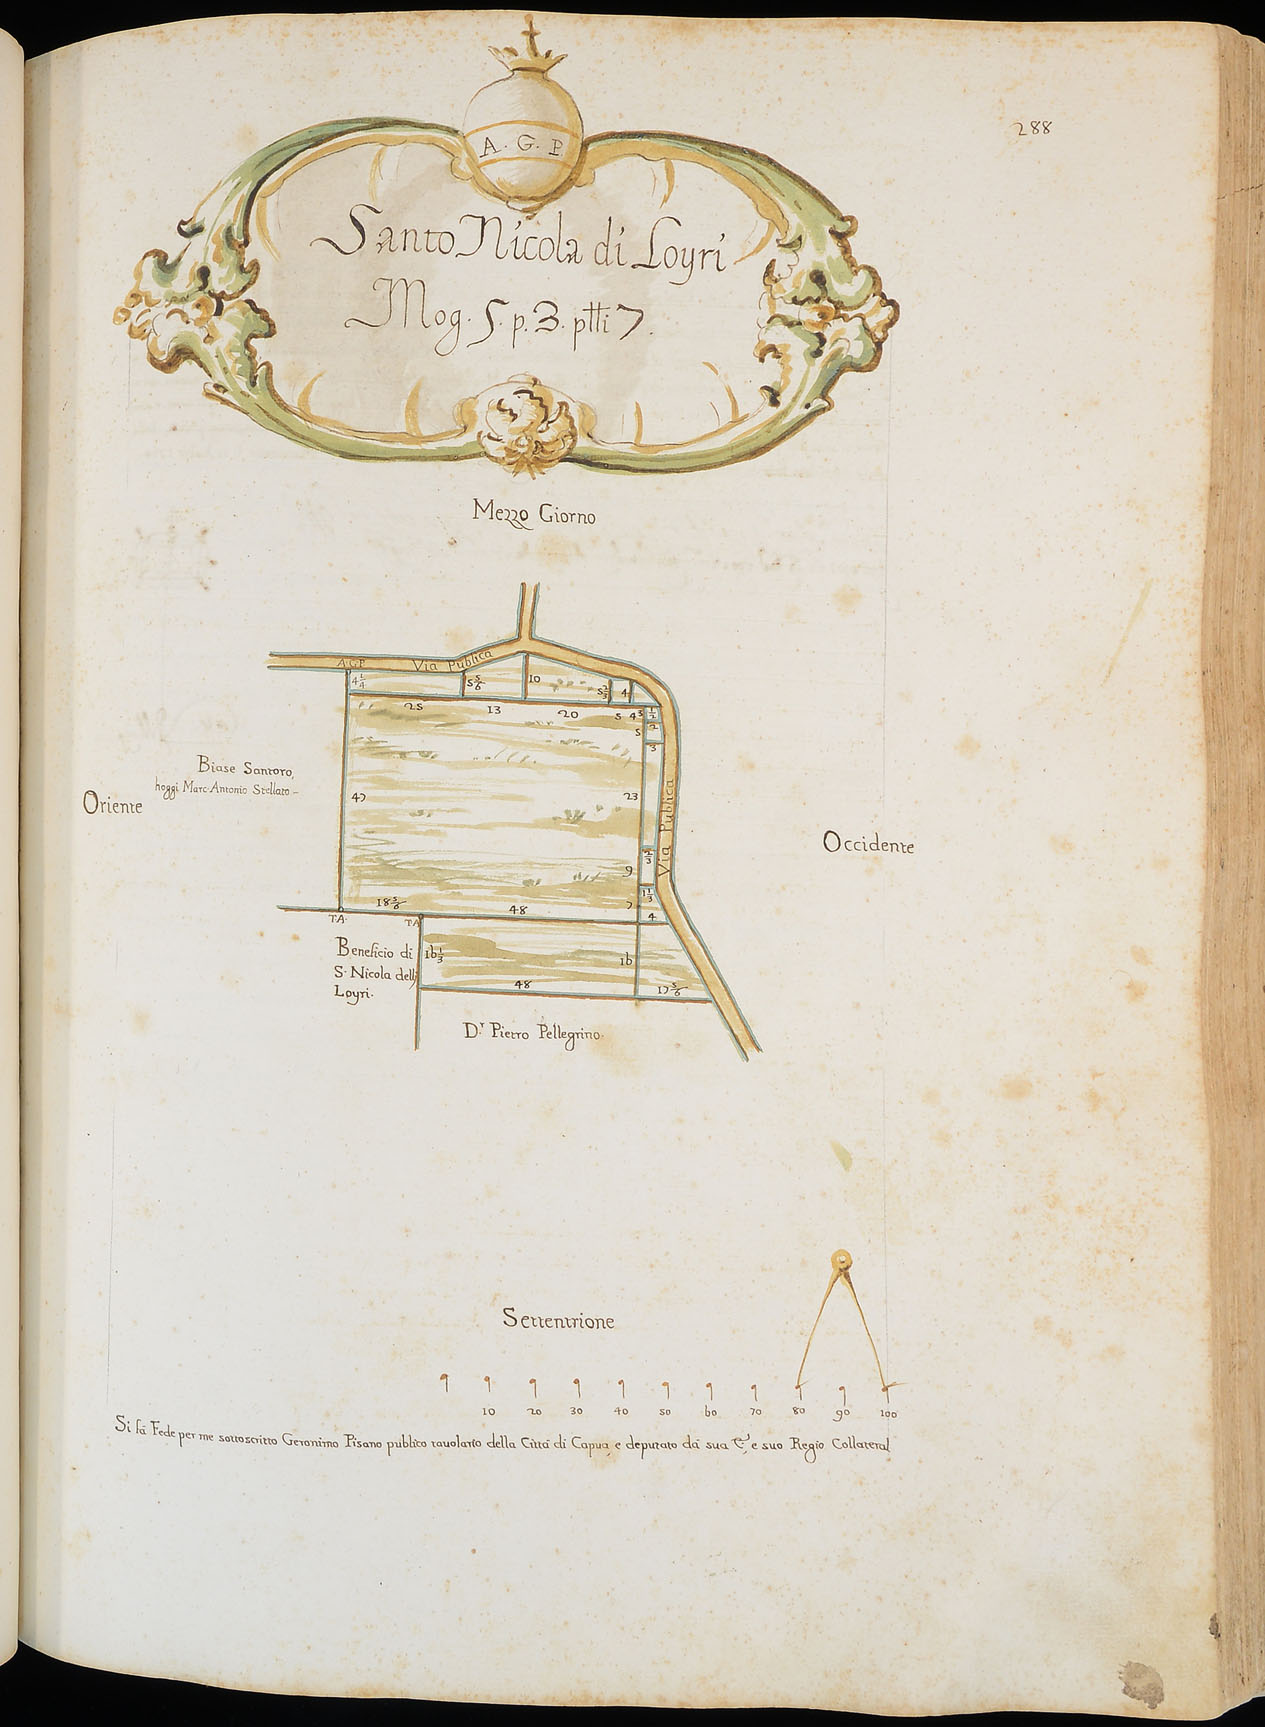 288
A. G. P
Santo Nicola di Loyri
Mog. 5. p. 3. ptti 7.
Mezzo Giorno
A G P Via Publica
4 1/4
5 5/6
10
5 2/3
4
25 13 20 5 4
3
1/2
5
2
3
Biase Santoro,
hoggi Marc-Antonio Stellato -
Oriente
47
23
Via Publica
Occidente
9
2/3
7
1 1/3
18 5/6
48
4
T.A.
T.A
Beneficio di
S. Nicola delli
Loyri.
16 1/3
16
48
17 5/6
D.r Pietro Pellegrino.
Settentrione
10 20 30 40 50 60 70 80 90 100
Si fà Fede per me sottoscritto Geronimo Pisano publico tavolario della Città di Capua, e deputato dà sua E. e suo Regio Collateral